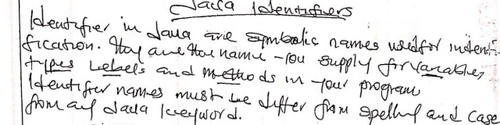 Java Identifiers
Identifier in Java are symbolic names used for identi-
fication. They are the name you supply for variables,
types Labels and methods in your program
Identifier names must be differ from spelling and case
from any Java keyword.